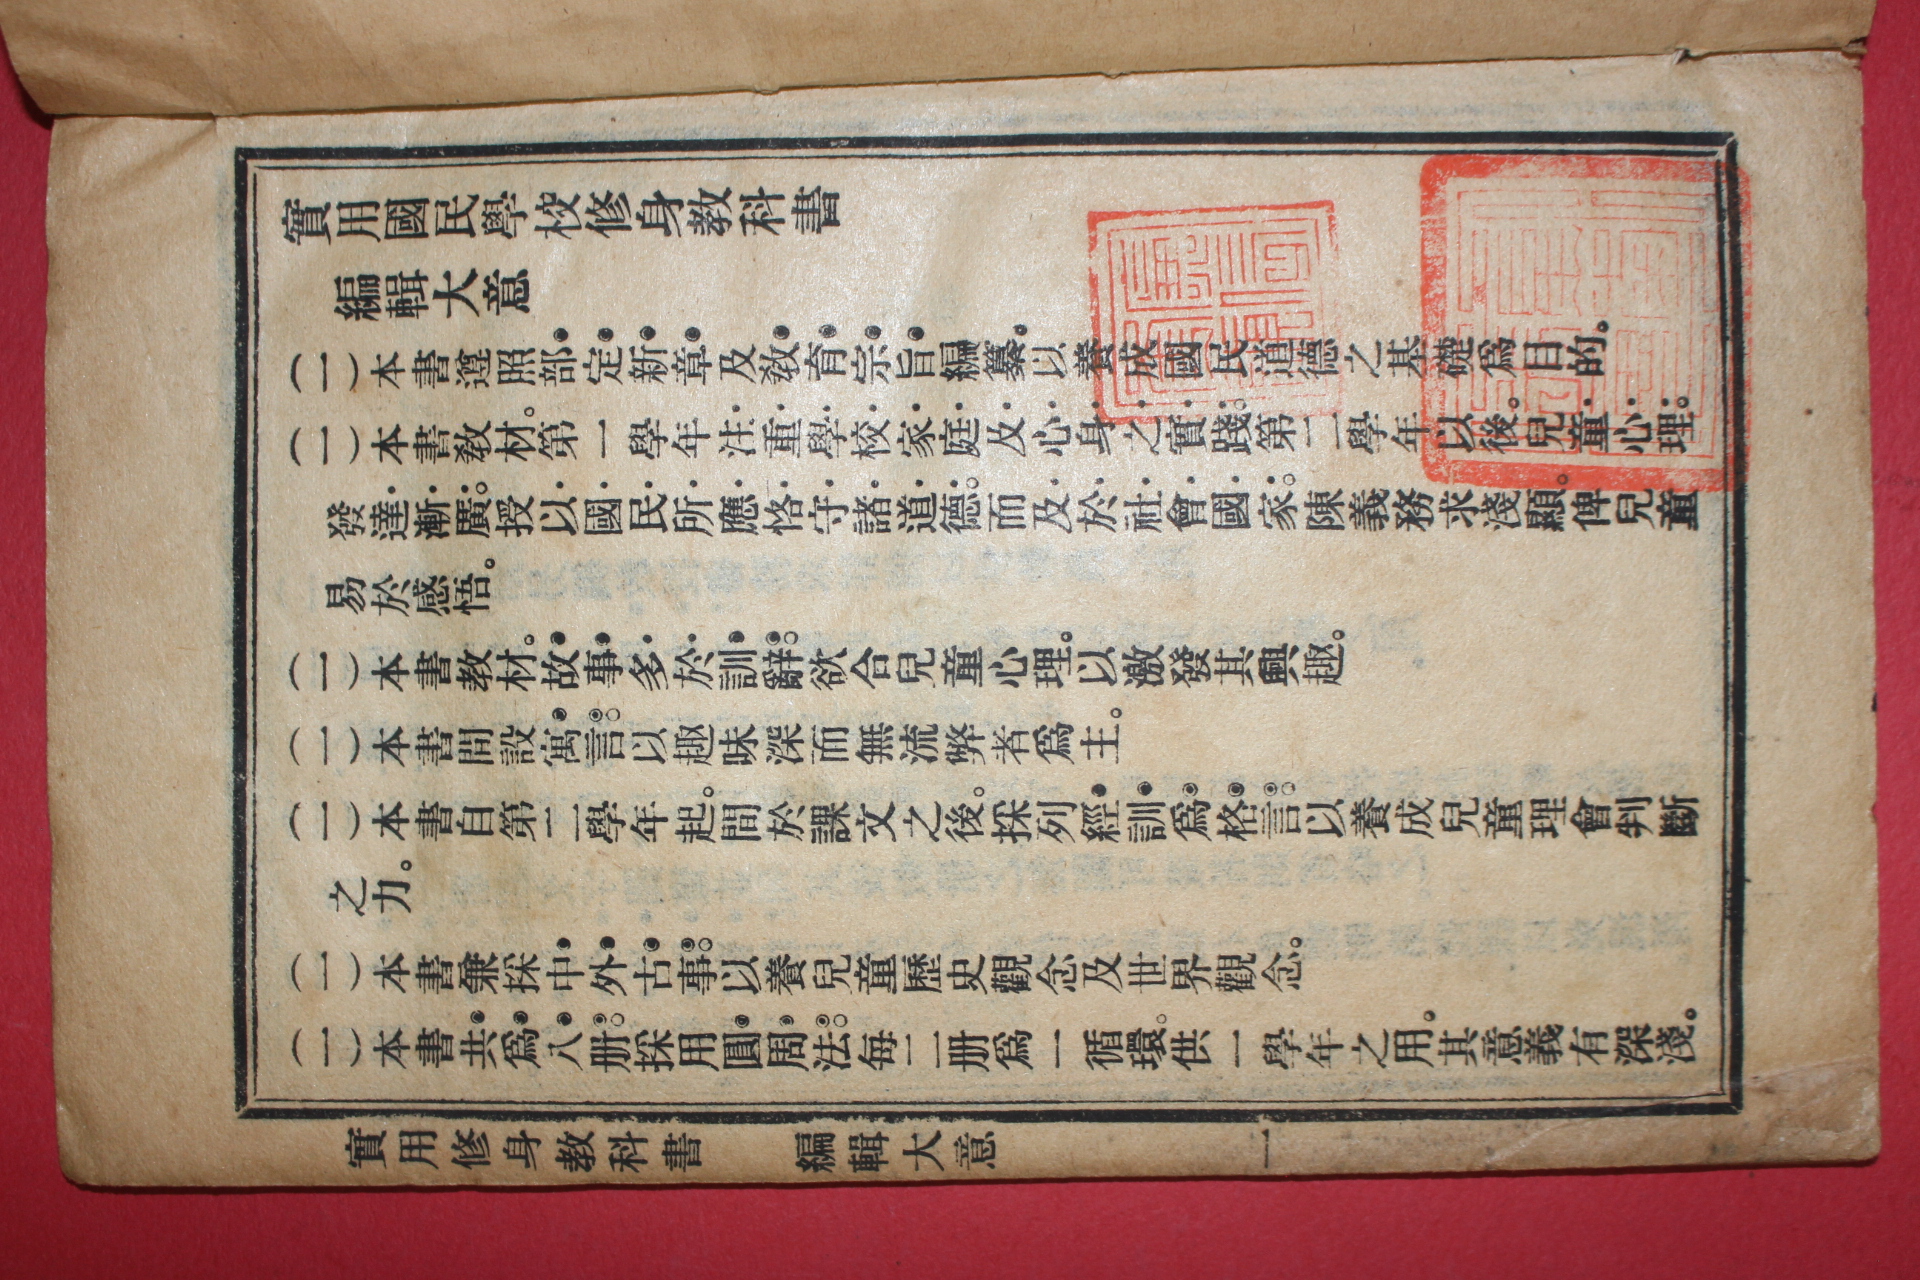 實用國民學校修身教科書
編輯大意
(一)本書遵照部定新章及教育宗旨編纂。以養成國民道德之基礎爲目的。
(一)本書教材。第一學年注重學校家庭及心身之實踐。第二學年以後。兒童心理。
發達漸廣。授以國民所應恪守諸道德。而及於社會國家。陳義務求淺顯。俾兒童
易於感悟。
(一)本書教材。故事多於訓辭。欲合兒童心理。以激發其興趣。
(一)本書間設寓言。以趣味深而無流弊者爲主。
(一)本書自第二學年起。間於課文之後。採列經訓爲格言。以養成兒童理會判斷
之力。
(一)本書兼採中外古事。以養兒童歷史觀念及世界觀念。
(一)本書共爲八册。採用圓周法。每二册爲一循環。供一學年之用。其意義有深淺。
實用修身教科書 編輯大意 一